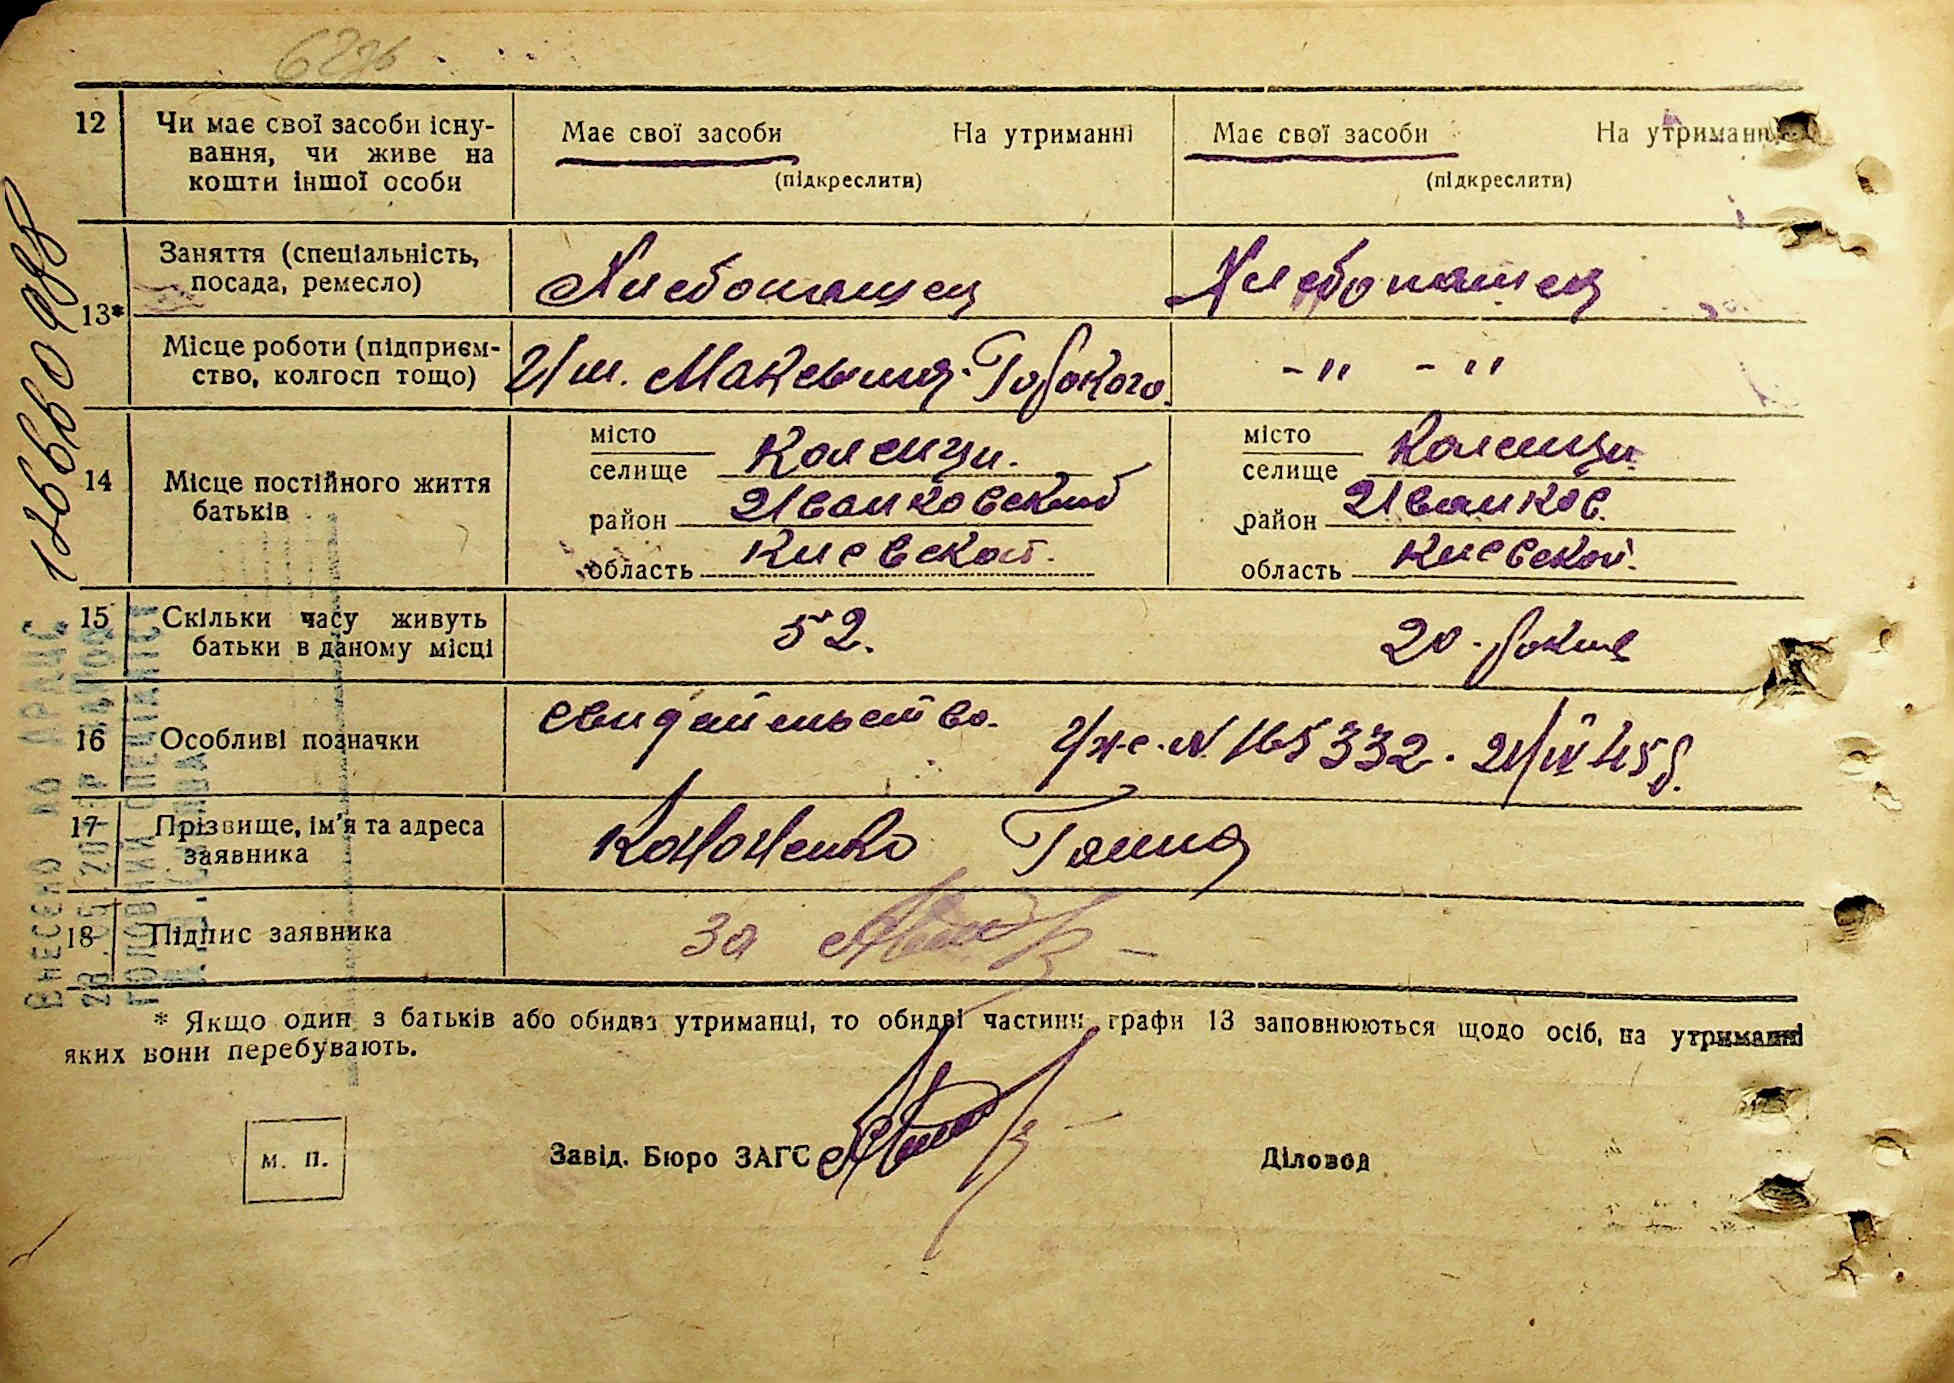 12 Чи має свої засоби існу-
вання, чи живе на
кошти іншої особи
Має свої засоби На утриманні
(підкреслити)
Має свої засоби На утриманні
(підкреслити)
13*
Заняття (спеціальність,
посада, ремесло)
Хлебопашец
Хлебопашец
Місце роботи (підприєм-
ство, колгосп тощо)
Им. Максыма Горкого
- " - "
14 Місце постійного життя
батьків
місто
селище Коленци.
район Иванковский
область Киевской.
місто
селище Коленци.
район Иванков.
область Киевской.
15 Скільки часу живуть
батьки в даному місці
52.
20 рокив
16 Особливі позначки
свидательство. №165332. 21/IV 45 р.
17 Прізвище, ім'я та адреса
заявника
Кононенко Ганна
18 Підпис заявника
За
* Якщо один з батьків або обидва утриманці, то обидві частини графи 13 заповнюються щодо осіб, на утриманні
яких вони перебувають.
м. п.
Завід. Бюро ЗАГС
Діловод
Внесено до ДРАЦС